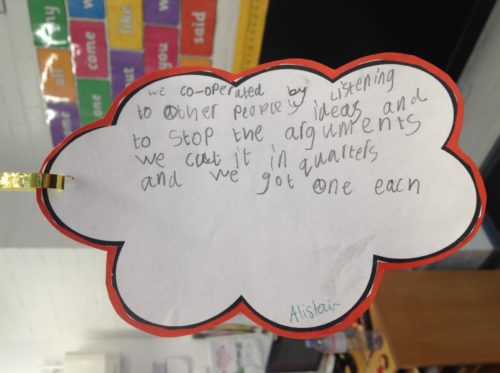 we co-operated by Listening
to other people's ideas and
to stop the arguments
we cut it in quarters
and we got one each
Alistair
all
come
like
said
me
you